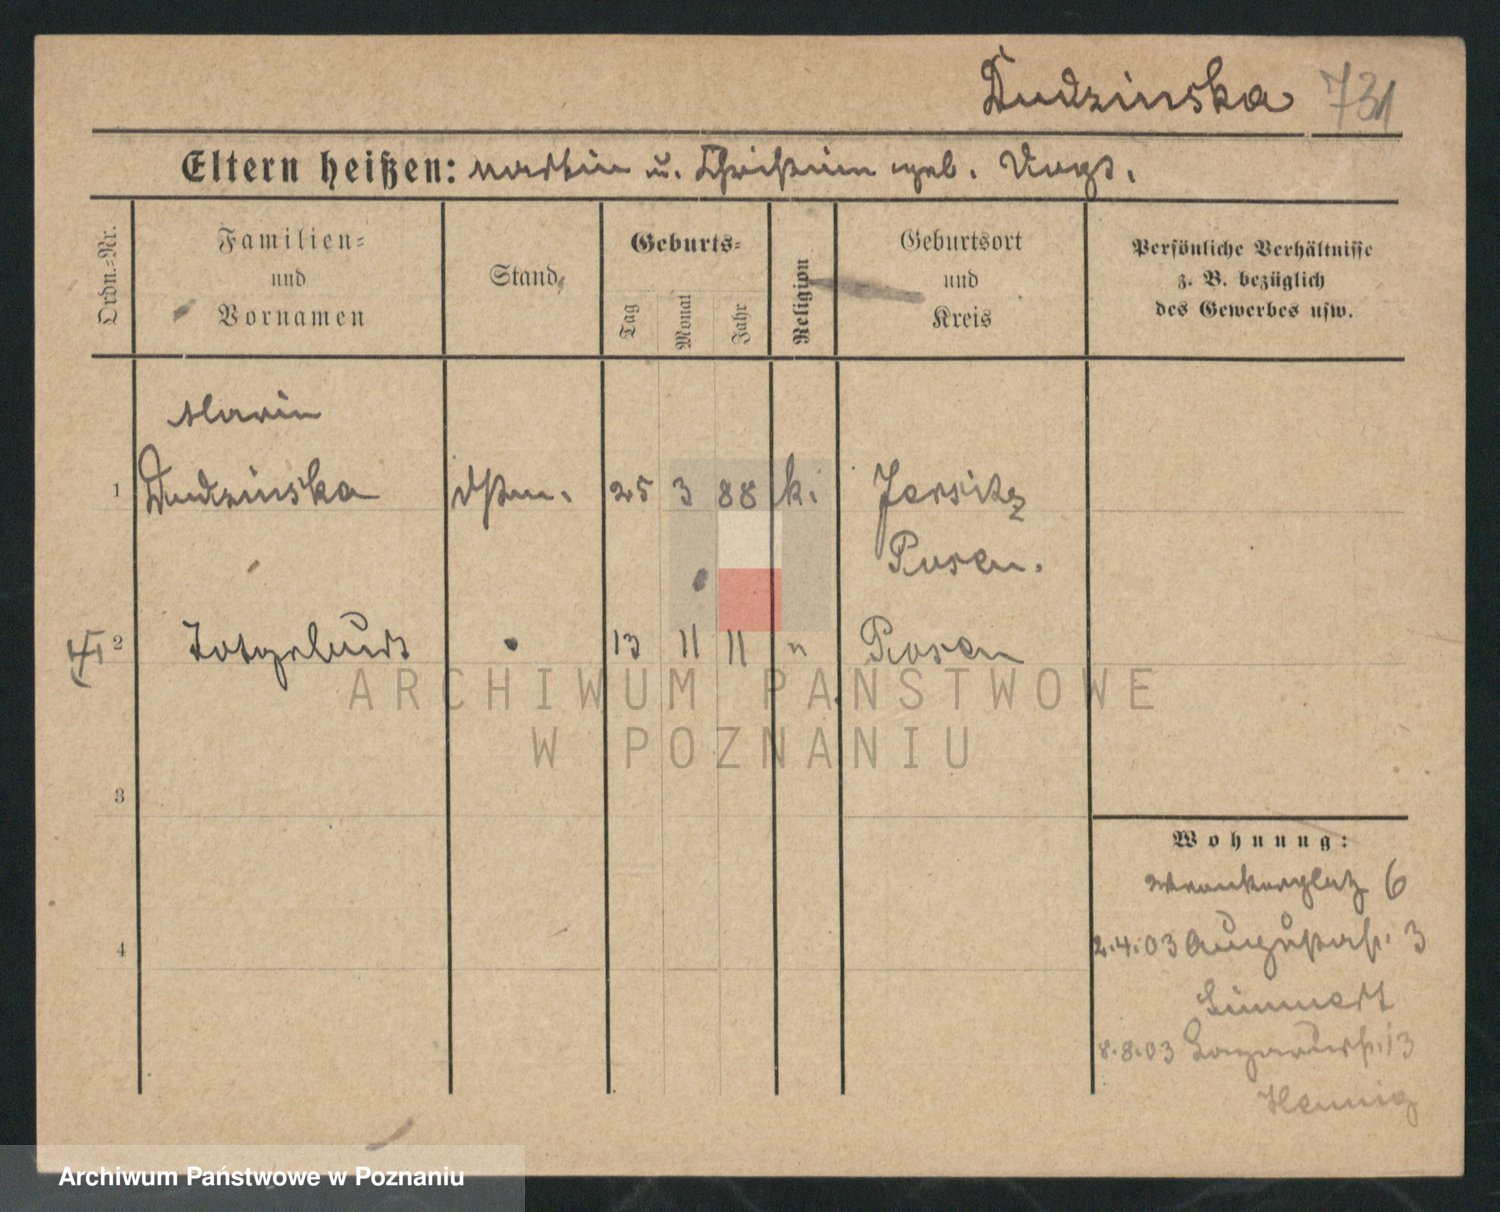 Dudzinska 731
Eltern heißen: Martin u. Christine geb. Vogt.
Ordn.-Nr.
Familien-
und
Vornamen
Stand
Geburts-
Tag
Monat
Jahr
Religion
Geburtsort
und
Kreis
Persönliche Verhältnisse
z. B. bezüglich
des Gewerbes usw.
Marie
1 Dudzinska 25 3 88 k. Jersitz
Posen.
2 Totgeburt 13 11 11 " Posen
3
4
Wohnung:
Wronkerplatz 6
2.4.03 Augustastr. 3
8.8.03 13
Hennig
ARCHIWUM PAŃSTWOWE
W POZNANIU
Archiwum Państwowe w Poznaniu